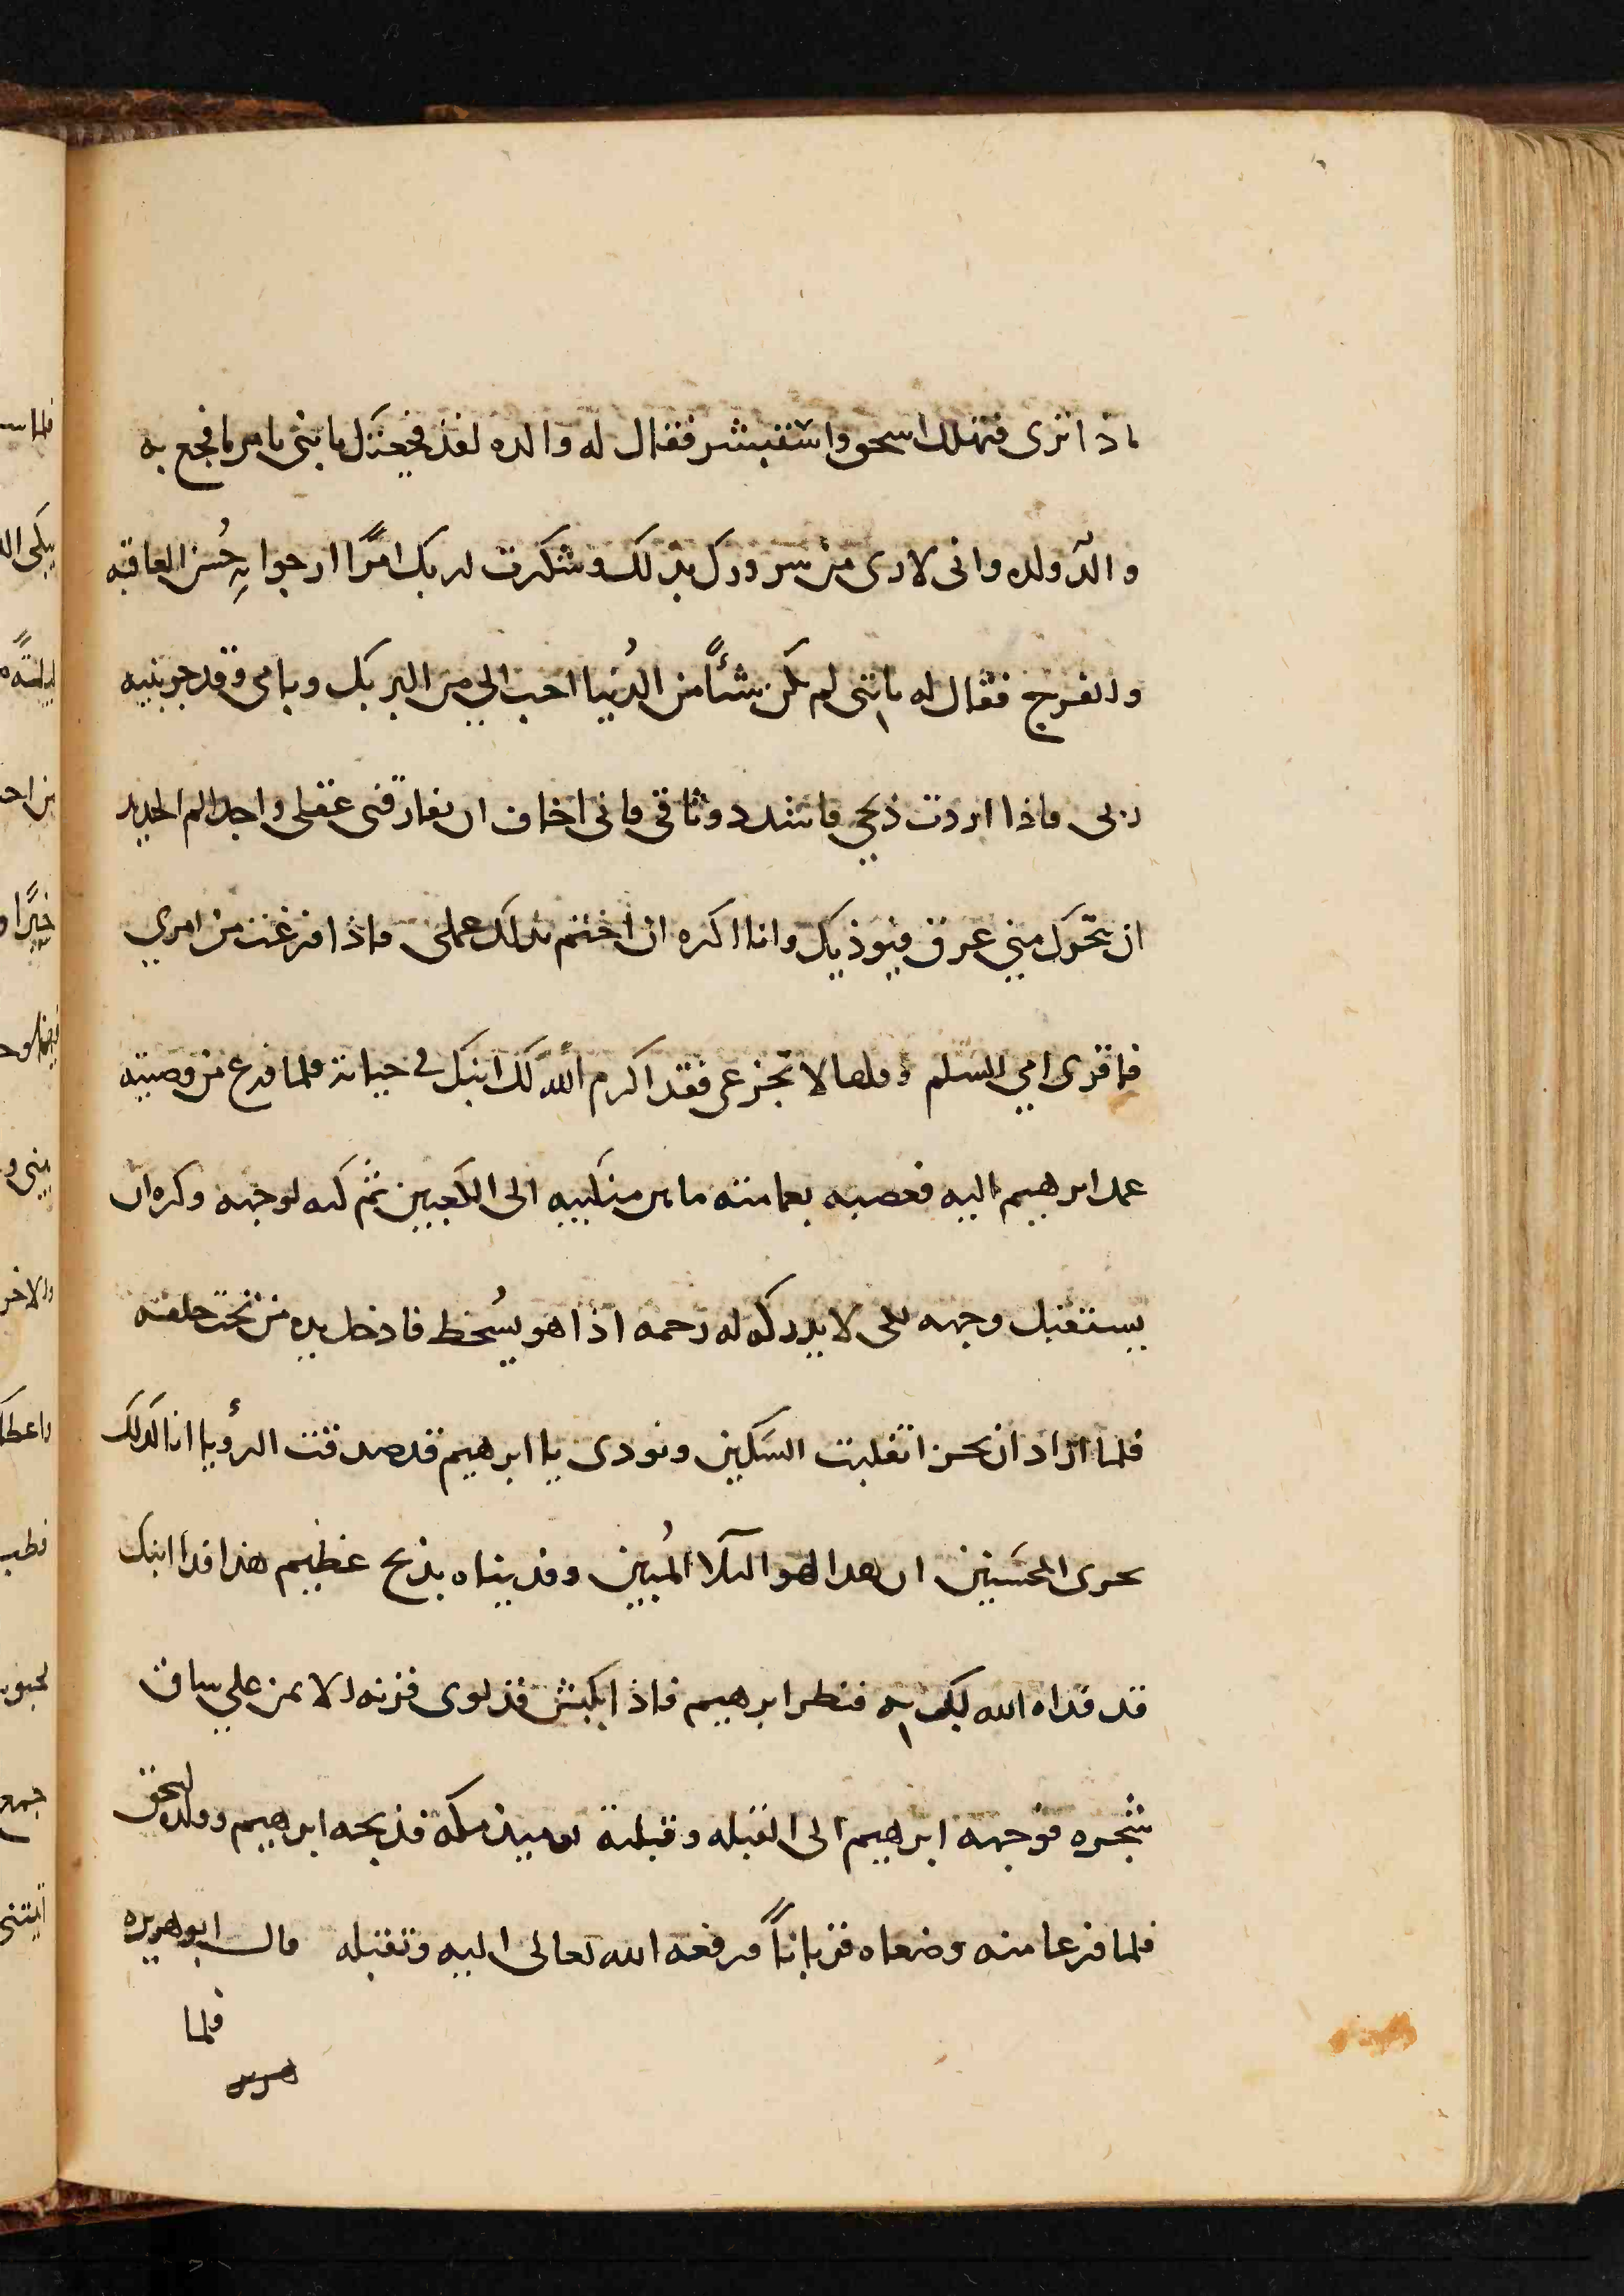 ماذا ترى فتهلل اسحق واستبشر فقال له والده لقد فجعتك يا بني بامر ما فجع به
والد ولده وانى لارى من سرورك بذلك وشكرك لربك امرًا ارجوا به حُسن العاقبه
والفرج فقال له يا ابتى لم يكن شئاً من الدُنيا احب الي من البر بك وبامى وقد جربنيه
ربى فاذا اردت ذبحي فاشدد وثاقي فانى اخاف ان يفارقنى عقلى واجد الم الحديد
ان يتحرك مني عرق فيوذيك وانا اكره ان اختم بذلك عملى فاذا فرغت من امري
فاقرى امي السلم وقل لها لا تجزعى فقد اكرم الله لك ابنك في حياته فلما فرغ من وصيته
عمد ابرهيم اليه فعصبه بعمامته ما بين منكبيه الى الكعبين ثم كبه لوجهه وكره ان
يستقبل وجهه لكى لا يدركه له رحمه اذا هو يسُخط فادخل يده من تحت حلقه
فلما اراد ان يحز انقلبت السكين ونودى يا ابرهيم قد صدقت الرؤيا انا كذلك
نجزى المحسنين ان هذا لهو البلآ المُبين وفديناه بذبح عظيم هذا فدا ابنك
قد فداه الله لك به فنظر ابرهيم فاذا بكبش قد لوى قرنه الايمن على ساق
شجره فوجهه ابرهيم الى القبله وقبلته يوميذ مكه فذبحه ابرهيم وولده اسحق
فلما فرغا منه وضعاه قرباناً فرفعه الله تعالى اليه وتقبله قال ابو هريره
فلما